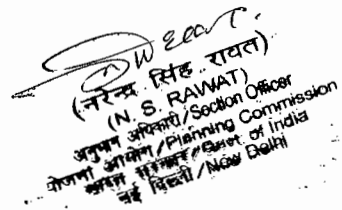 (नरेन्द्र सिंह रावत)
(N. S. RAWAT)
अनुभाग अधिकारी/Section Officer
योजना आयोग/Planning Commission
भारत सरकार/Govt of India
नई दिल्ली/New Delhi